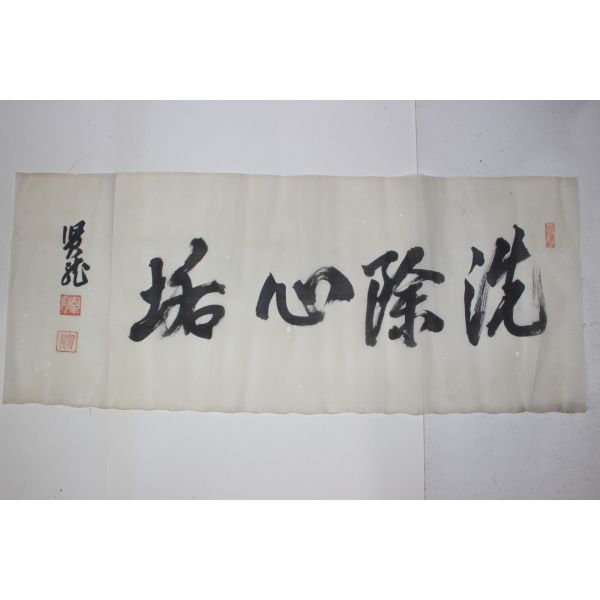 洗除心垢